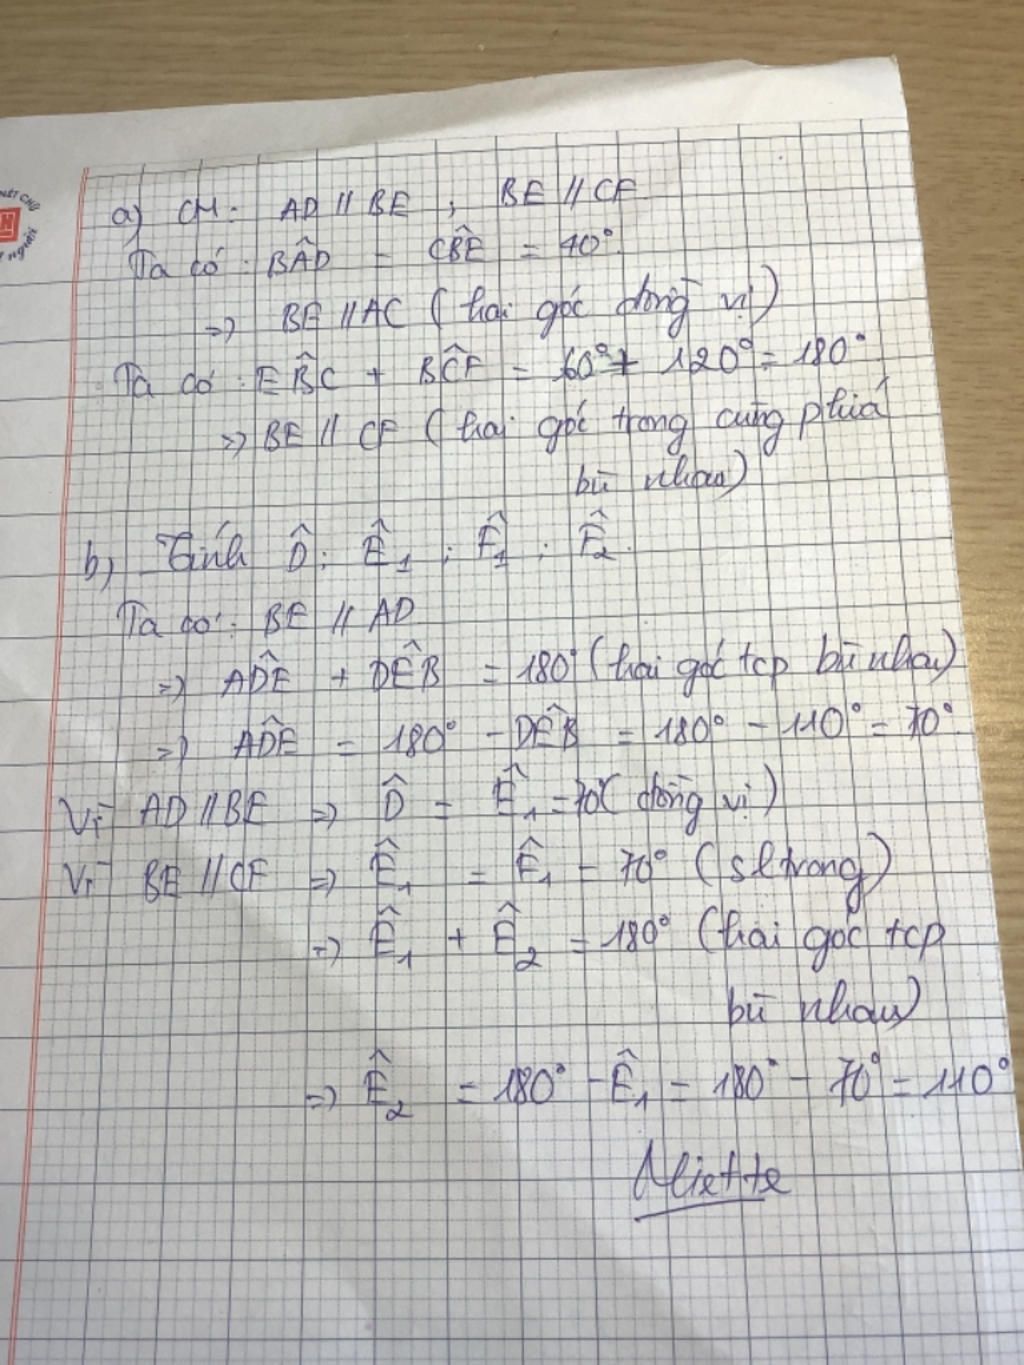 NÉT CHỮ
người
a) CM: AD // BE ; BE // CF
Ta có: BÂD = CB̂E = 70°.
=> BE // AC (hai góc đồng vị)
Ta có: EB̂C + BĈF = 60° + 120° = 180°
=> BE // CF (hai góc trong cùng phía
bù nhau)
b) Tính D̂; Ê₁; F̂₁; F̂₂.
Ta có: BE // AD
=> AD̂E + DÊB = 180° (hai góc tcp bù nhau)
=> AD̂E = 180° - DÊB = 180° - 110° = 70°.
Vì AD // BE => D̂ = Ê₁ = 70° (đồng vị)
Vì BE // CF => Ê₁ = F̂₁ = 70° (sltrong)
=> Ê₁ + Ê₂ = 180° (hai góc tcp
bù nhau)
=> Ê₂ = 180° - Ê₁ = 180° - 70° = 110°